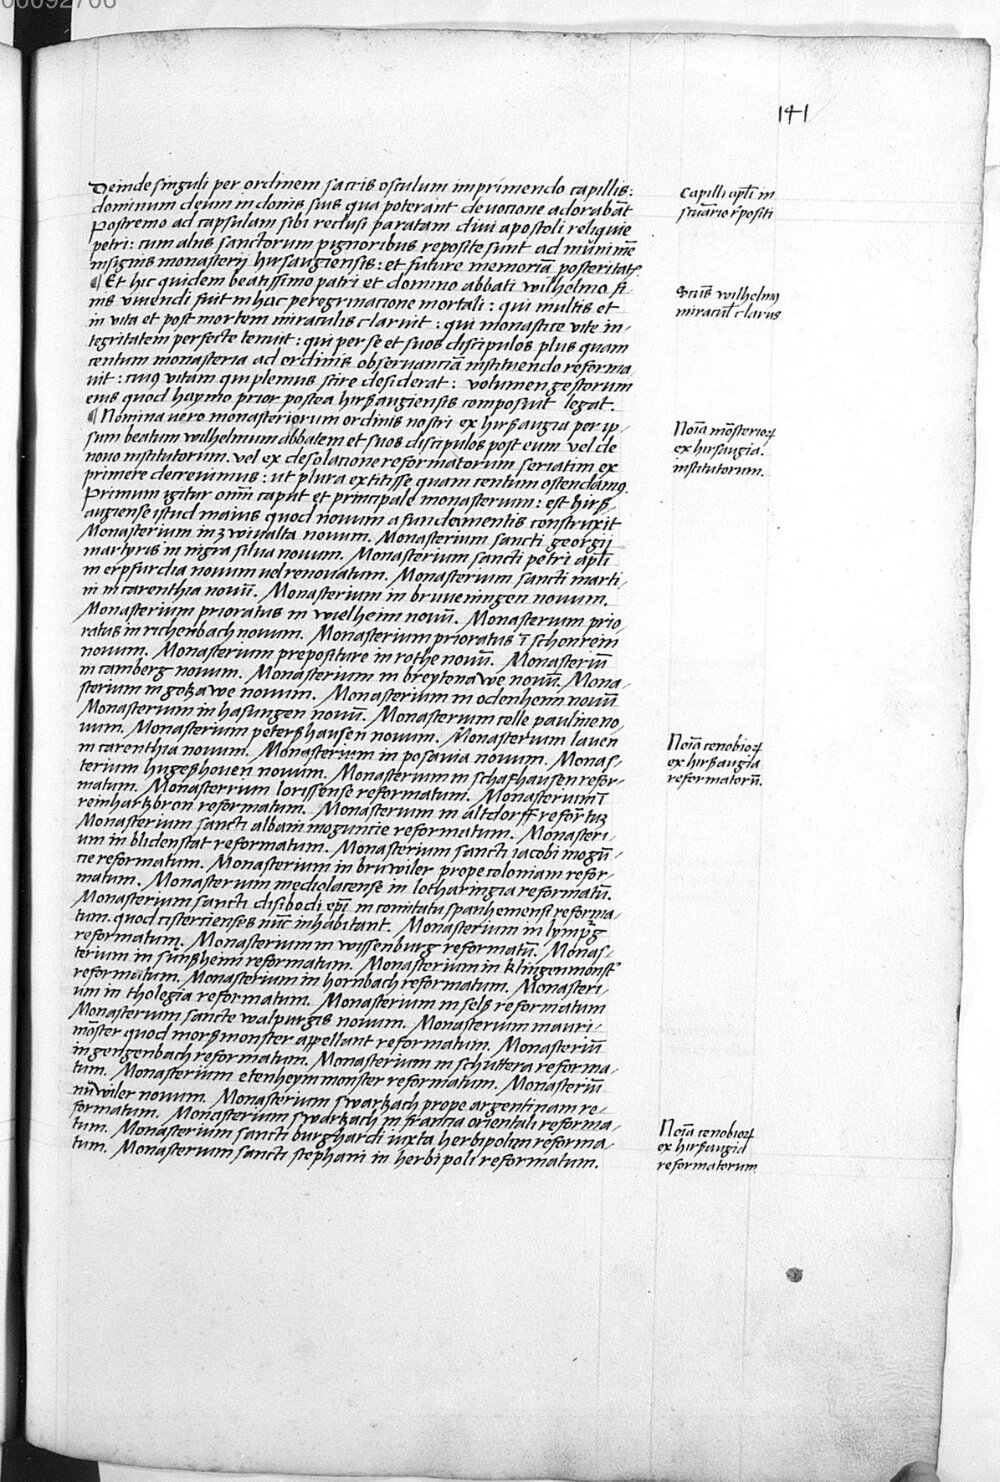 141
Deinde singuli per ordinem sacris osculum imprimendo capillis:
dominum deum in donis suis qua poterant devocione adorabāt
Postremo ad capsulam sibi reclusi paratam divi apostoli reliquie
petri: cum aliis sanctorum pignoribus reposite sunt ad munimē
insignis monasterij hirsaugiensis: et future memoriā posteritatꝭ
¶ Et hic quidem beatissimo patri et domino abbati wilhelmo fi
nis vivendi fuit in hac peregrinacione mortali: qui multis et
in vita et post mortem miraculis claruit: qui monastice vite in-
tegritatem perfecte tenuit: qui per se et suos discipulos plus quam
centum monasteria ad ordinis observanciā instituendo reforma
vit: cuiꝰ vitam qui plemus scire desiderat: volumen gestorum
eius quod haymo prior postea hirßaugiensis composuit legat.
¶ Nomina vero monasteriorum ordinis nostri ex hirßaugia per ip-
sum beatum wilhelmum abbatem et suos discipulos post eum vel de
novo institutorum. vel ex desolacione reformatorum seriatim ex
primere decrevimus: ut plura extitisse quam centum ostendamꝰ.
Primum igitur omm caput et principale monasterium: est hirß-
augiense istud maius quod novum a fundamentis construxit
Monasterium in zwivalta novum. Monasterium sancti georgij
martyris in nigra silva novum. Monasterium sancti petri apłi
in erpfurdia novum vel renovatum. Monasterium sancti marti-
ni in carenthia novū. Monasterium in bruveningen novum.
Monasterium prioratus in wielheim novū. Monasterium prio-
ratus in richenbach novum. Monasterium prioratus ī schonrein
novum. Monasterium prepositure in rothe novū. Monasteriū
in camberg novum. Monasterium in breytenawe novū. Mona-
sterium in gekawe novum. Monasterium in odenheim novū
Monasterium in hasungen novū. Monasterium celle pauline no-
vum. Monasterium peterßhausen novum. Monasterium laven
in carenthia novum. Monasterium in posavia novum. Monas-
terium hugeßhoven novum. Monasterium in schafhausen refor-
matum. Monasterium lorissense reformatum. Monasterium ī
reinharkbron reformatum. Monasterium in altdorff reformatuꝫ
Monasterium sancti albani moguncie reformatum. Monasteri-
um in blidenstat reformatum. Monasterium sancti iacobi mogū-
cie reformatum. Monasterium in bruwiler prope coloniam refor-
matum. Monasterium mediolacense in lotharingia reformatū.
Monasterium sancti disibodi epi in comitatu spanhemensi reforma-
tum. quod cistercienses nūc inhabitant. Monasterium in lympꝰg
reformatum. Monasterium in wissenburg reformatū. Monas-
terium in sunßheim reformatum. Monasterium in klingenmonst
reformatum. Monasterium in hornbach reformatum. Monasteri-
um in tholegia reformatum. Monasterium in selß reformatum
Monasterium sancte walpurgis novum. Monasterium mauri-
mōster quod morßmonster appellant reformatum. Monasteriū
in gengenbach reformatum. Monasterium in schuttera reforma-
tum. Monasterium etenheym monster reformatum. Monasteriū
nuwiler novum. Monasterium swarkach prope argentinam re-
formatum. Monasterium swarkach in francia orientali reforma-
tum. Monasterium sancti burghardi iuxta herbipolim reforma-
tum. Monasterium sancti stephani in herbipoli reformatum.
Capilli apłi in
scuārio rꝑositi
Scūs wilhelmꝰ
miracuł clarus
Noīa mōsterioꝝ
ex hirsaugia.
institutorum.
Noīa cenobioꝝ
ex hirßaugia
reformatorū.
Noīa cenobioꝝ
ex hirßaugia
reformatorum